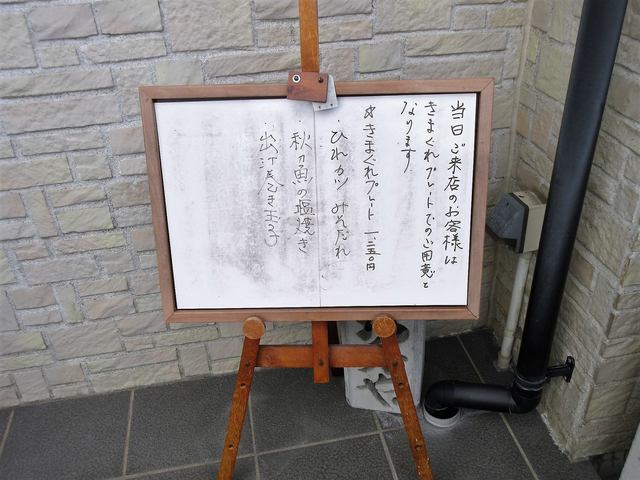 当日ご来店のお客様は
きまぐれプレートでのご用意と
なります
きまぐれプレート 一、三五〇円
・ひれカツ みそだれ
・秋刀魚の塩焼き
・出汁巻き玉子